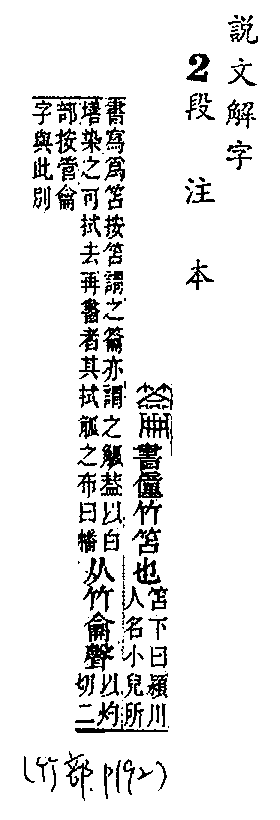 說文解字
2段注本
書僮竹笘也笘下曰潁川人名小兒所
書寫爲笘按笘謂之籥亦謂之觚葢以白
墡染之可拭去再書者其拭觚之布曰幡从竹龠聲以灼切二
部按管龠
字與此別
(竹部.P192)